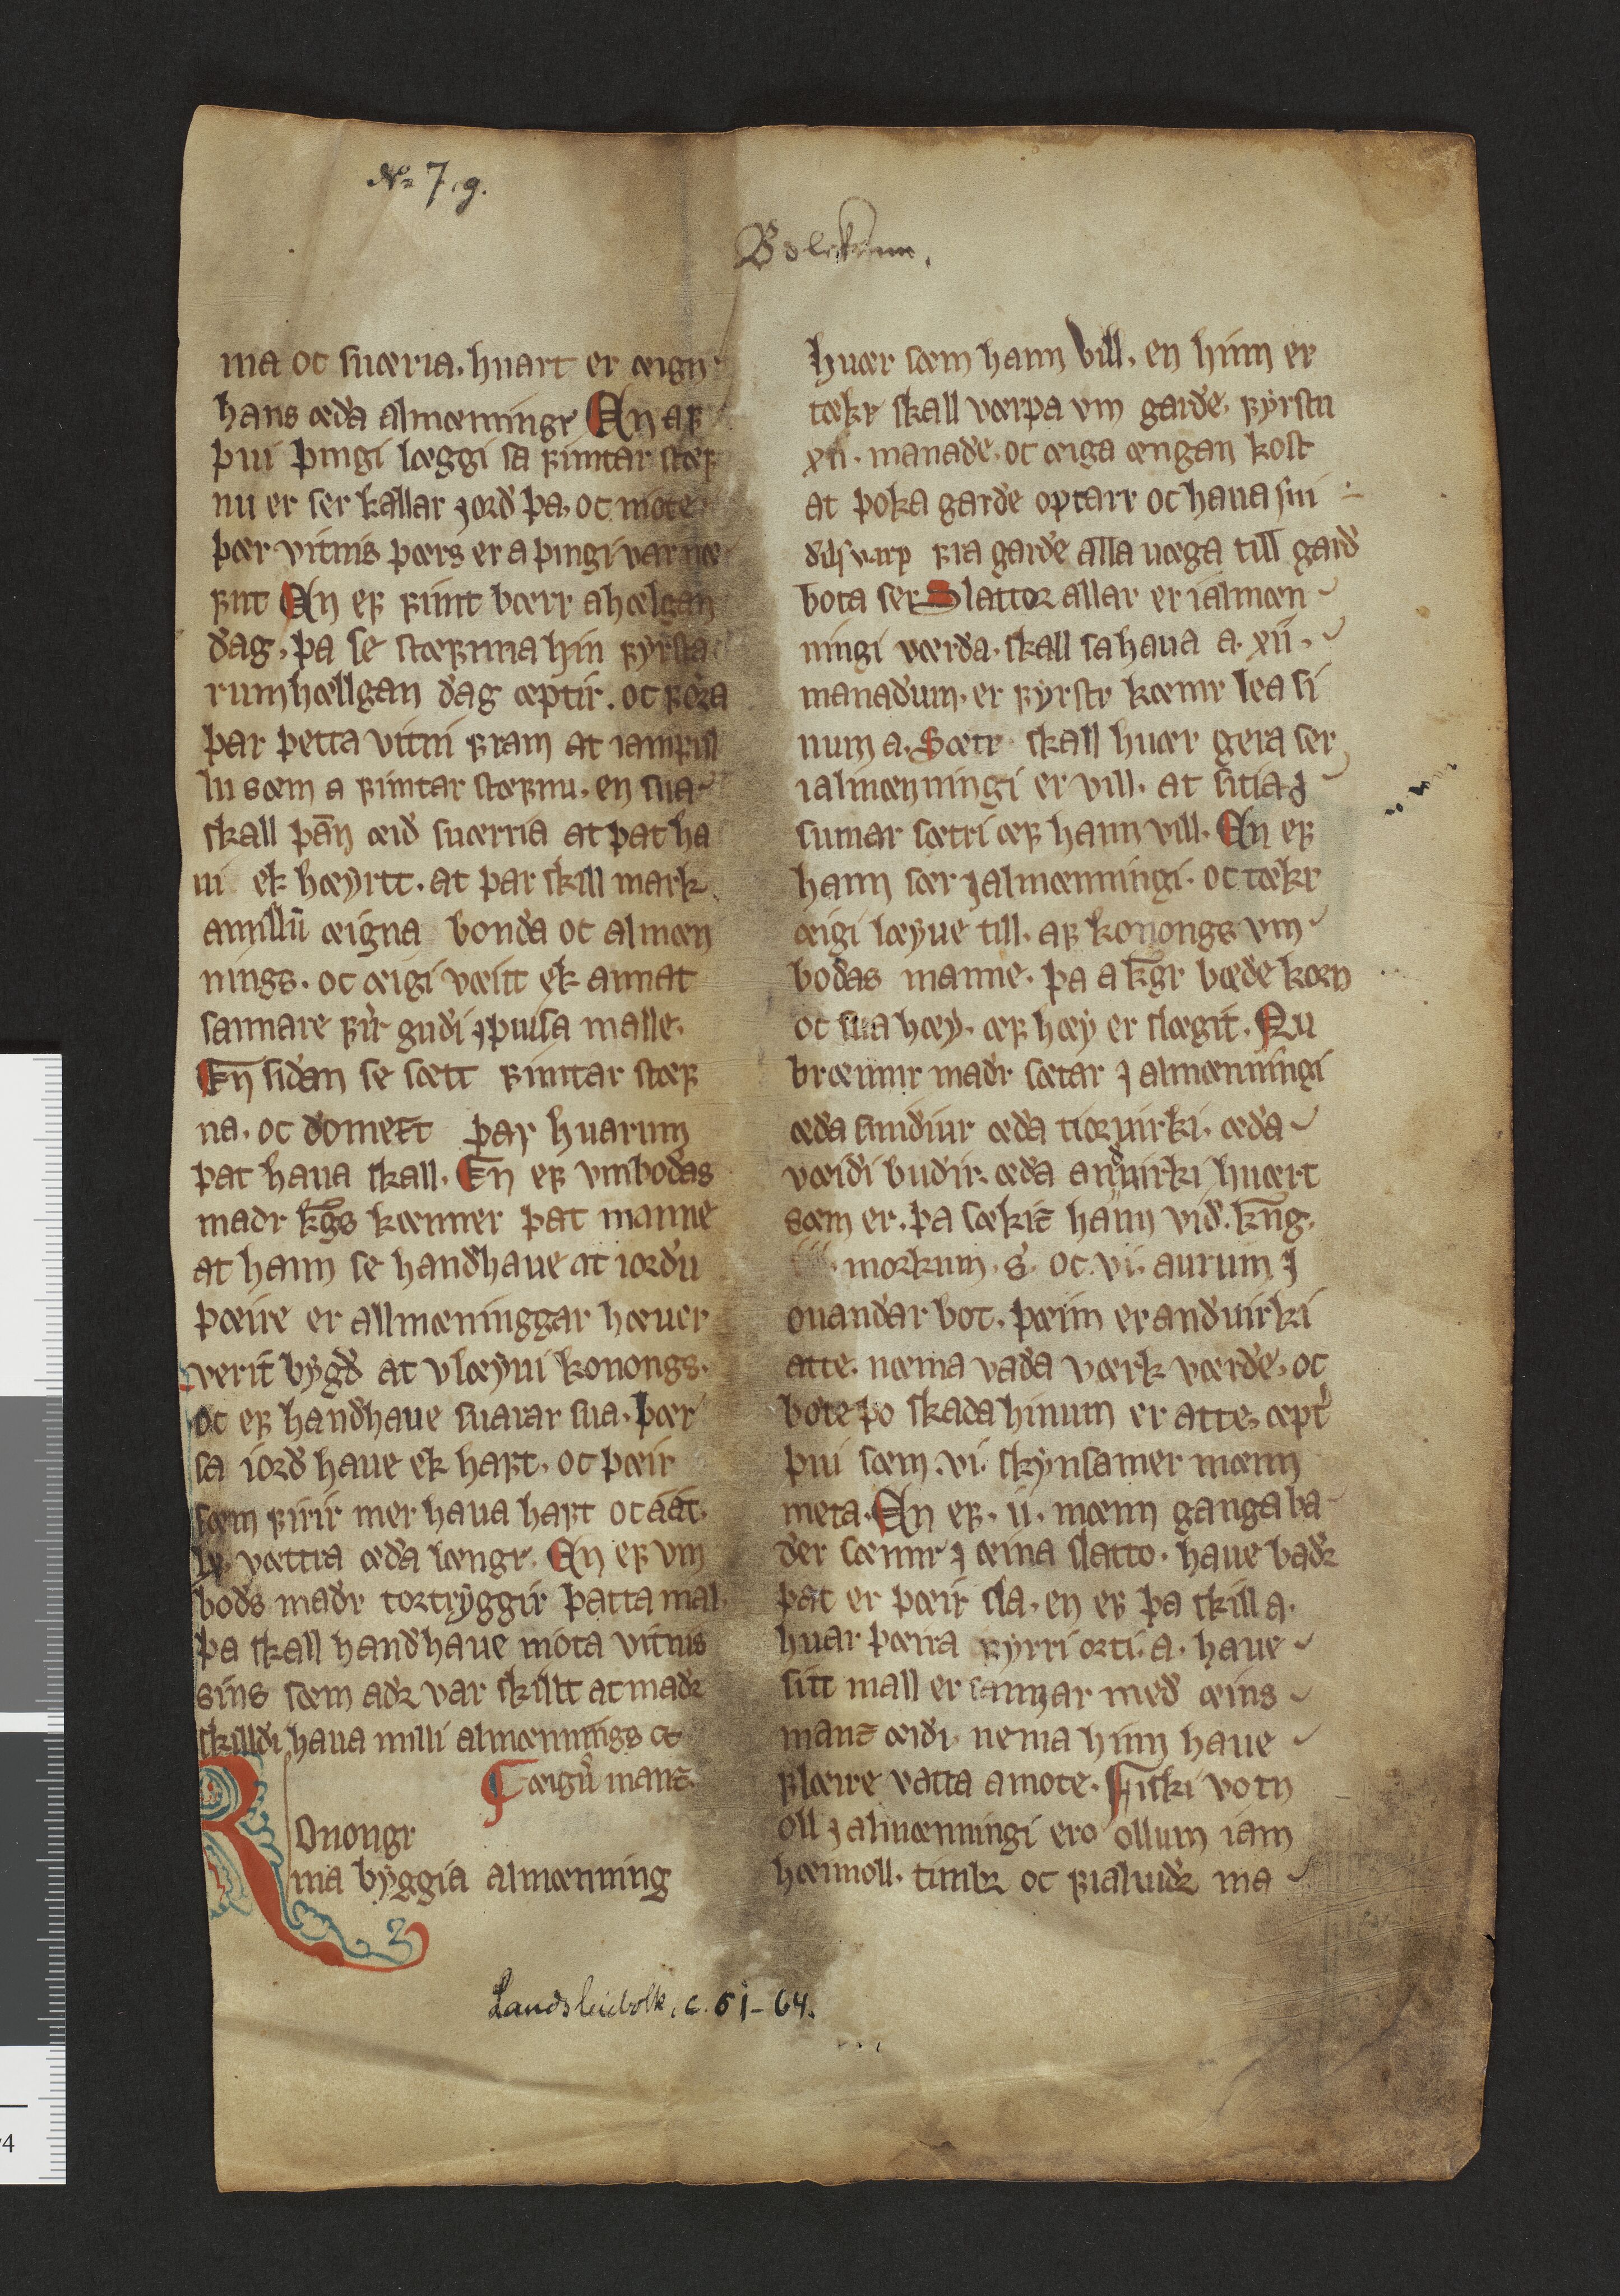 No 7.g.
Bolkenn.
ma oc suæria. huart er æign
hans æda almænningr En aff
þui þingi læggi sa fimtar stæf
nu er ser kallar jord þa. oc mote
þær vitnis þærs er a þingi var næ
fnt En ef fimt bærr a hælgan
dag. þa se stæfnna hin fyrsta
rumhællgan dag æptir. oc føra
þar þetta vitni fram at iamful
lu sæm a fimtar stæfnu. en sua
skall þan̄ æid suærria at þat ha
ui ek hæyrtt. at þar skill mark
amillū æigna bonda oc almæn
nings. oc æigi væitt ek annat
sannare fyr gudi j þuisa malle.
En̄ sidan se sætt fimtar stæf
na. oc domert þar huarum
þat haua skall. En ef vmbodas
madr kḡs kænner þat manne
at hann se handhaue at iordu
þæire er allmæninggar hæuer
verit bygd at vlæyui konongs.
oc ef handhaue suarar sua. þær
sa iord haue ek haft. oc þæir
sæm firir mer haua haft oc aat.
lx vættra æda længr. En ef vm
bods madr tortryggir þatta mal.
þa skall handhaue mota vitnis
sins sæm adr var skillt at madr
skilldi haua milli almænnings oc
æigū manz.
Konongr
ma byggia almænning
huær sæm hann vill. en hinn er
tækr skall værpa vm garde. fyrstu
xii. manade. oc æiga ængan kost
at þoka garde optarr oc haua sui
dils varp fra garde alla uæga till gard
bota ser Slattor allar er i almæn
ningi værda. skall sa haua a. xii.
manadum. er fyrstr kæmr lea si
num a. Sætr skall huær gera ser
i almænningi er vill. at sitia j
sumar sætri æf hann vill. En ef
hann sær j almænningi. oc tækr
æigi læyue till. af konongs vm
bodas manne. þa a kḡr bæde korn
oc sua hæy. æf hæy er slægit. Nu
brænnir madr sætar j almænningi
æda smidiur æda tioruirki. æda
væidi budir æda anduirki huært
sæm er. þa sækir hann vid. kn̄g.
morkum. s. oc .vi. aurum j
ouandar bot. þæim er anduirki
atte. næma vada værk værde. oc
bøte þo skada hinum er atte. æptr
þui sæm .vi. skynsamer mænn
meta. En ef. ii. mænn ganga ba
der sænnr j æina slatto. haue badr
þat er þæir sla. en ef þa skill a.
huar þæira fyrri orti. a. haue
sitt mall er sannar med æins
manz æidi. nema hinn haue
flæire vatta amote. Fiski votn
oll j almænningi ero ollum iam
hæimoll. timbr oc fialuidr ma
Landsleiebolk. c. 61-64.